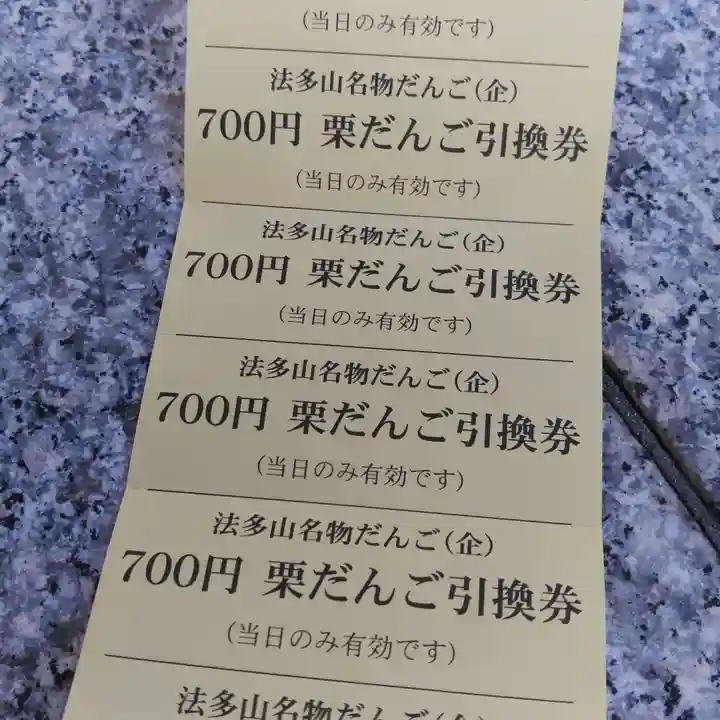 (当日のみ有効です)
法多山名物だんご(企)
700円 栗だんご引換券
(当日のみ有効です)
法多山名物だんご(企)
700円 栗だんご引換券
(当日のみ有効です)
法多山名物だんご(企)
700円 栗だんご引換券
(当日のみ有効です)
法多山名物だんご(企)
700円 栗だんご引換券
(当日のみ有効です)
法多山名物だんご(企)